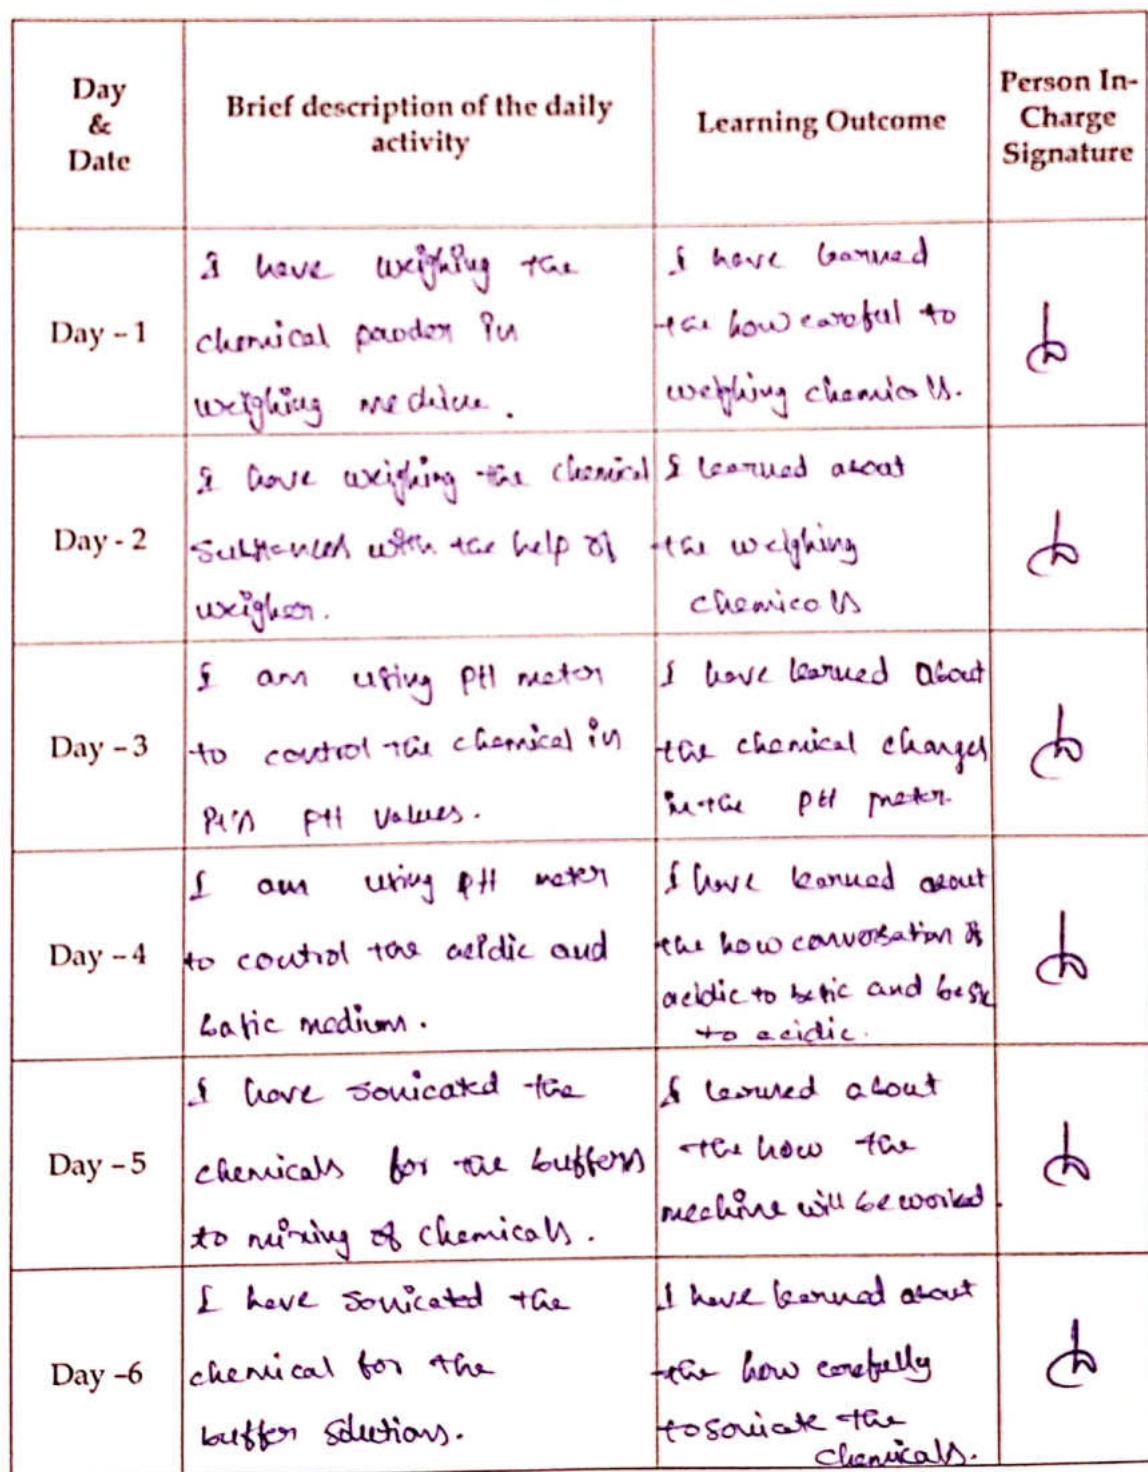 Day
&
Date
Brief description of the daily
activity
Learning Outcome
Person In-
Charge
Signature
Day - 1
I have weighing the
chemical powder in
weighing mechine.
I have learned
the how careful to
weighing chemicals.
Day - 2
I have weighing the chemical
substances with the help of
weigher.
I learned about
the weighing
chemicals
Day - 3
I am using PH meter
to control the chemical in
PH values.
I have learned about
the chemical changes
in the PH meter.
Day - 4
I am using PH meter
to control the acidic and
basic medium.
I have learned about
the how conversation of
acidic to basic and basic
to acidic.
Day - 5
I have sonicated the
chemicals for the buffers
to mixing of chemicals.
I learned about
the how the
mechine will be worked.
Day -6
I have sonicated the
chemical for the
buffer solutions.
I have learned about
the how carefully
to sonicate the
chemicals.